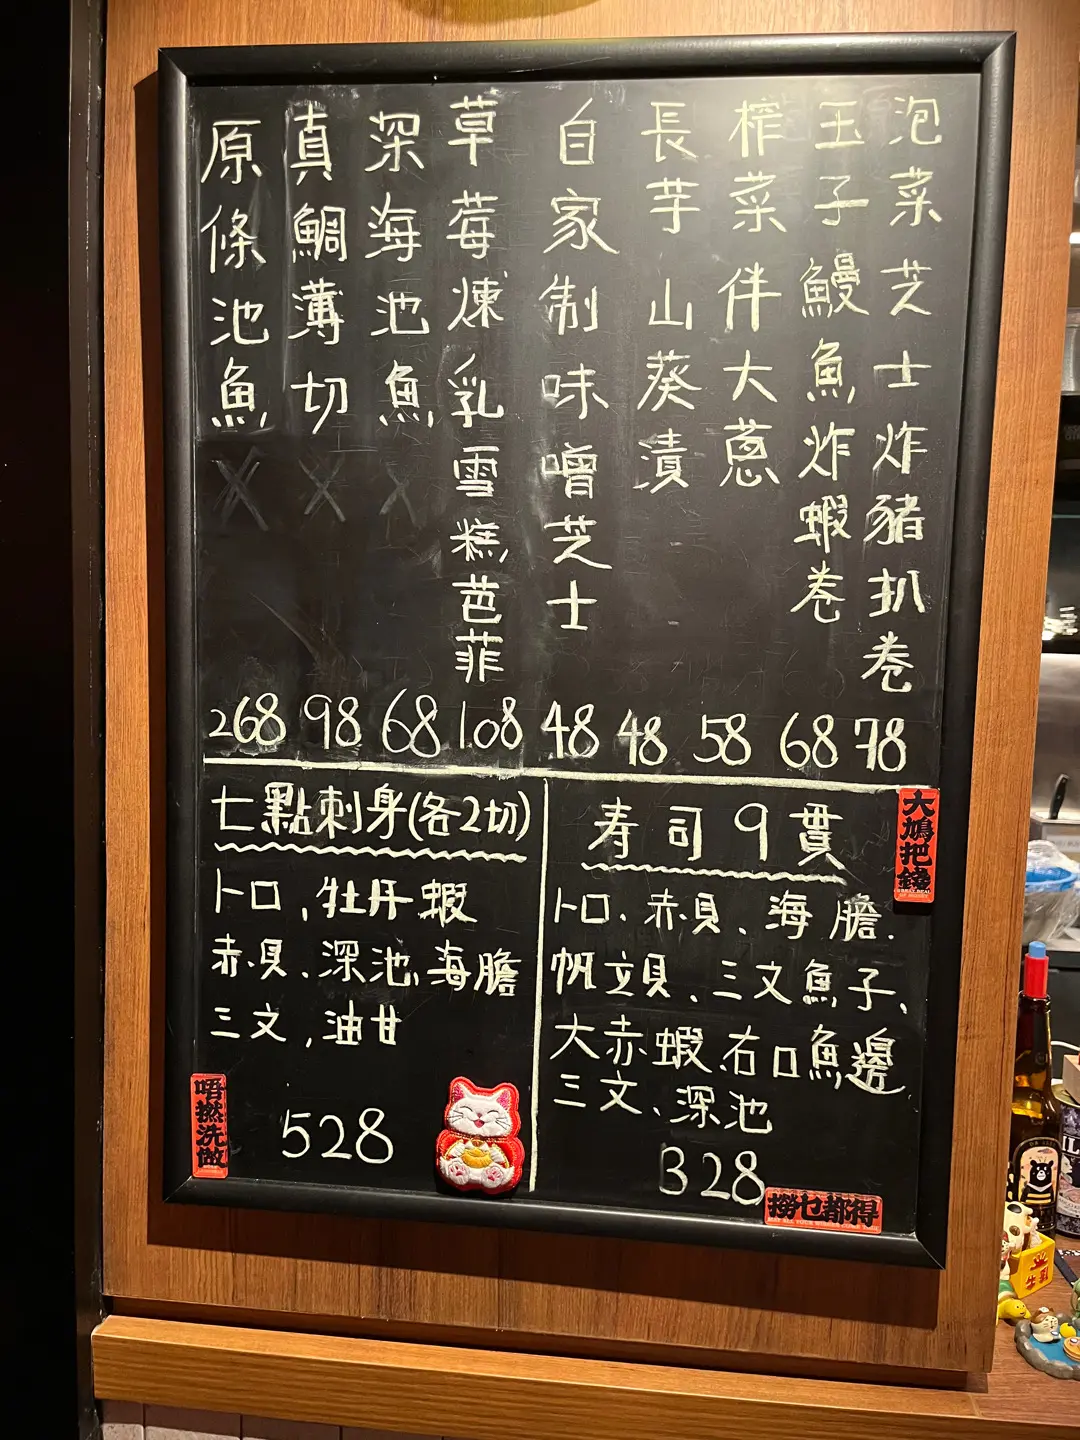 泡菜芝士炸豬扒卷 78
玉子鰻魚炸蝦卷 68
榨菜伴大蔥 58
長芋山葵漬 48
自家制味噌芝士 48
草莓煉乳雪糕芭菲 108
深海池魚 X 68
真鯛薄切 X 98
原條池魚 X 268
七點刺身(各2切)
卜口,牡丹蝦
赤貝、深池,海膽
三文,油甘
528
寿司9貫
卜口、赤貝、海膽、
帆立貝、三文魚子、
大赤蝦、右口魚邊
三文、深池
328
大鳩把錢
唔撚洗做
撈乜都得